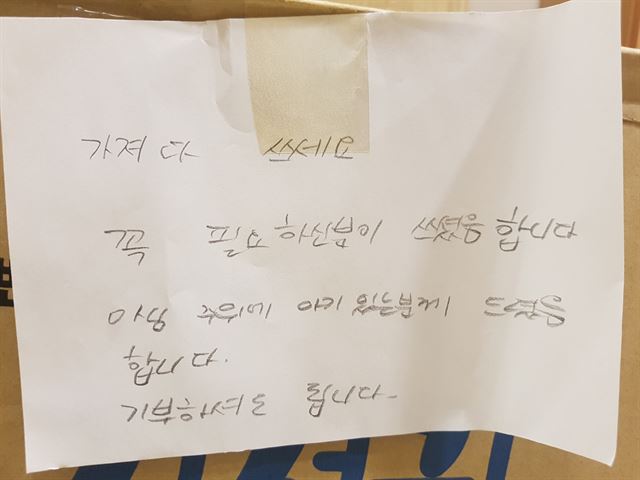 가져다 쓰세요
꼭 필요하신분이 쓰셨음 합니다
아님 주위에 아기 있는분께 드렸음
합니다.
기부하셔도 됩니다.